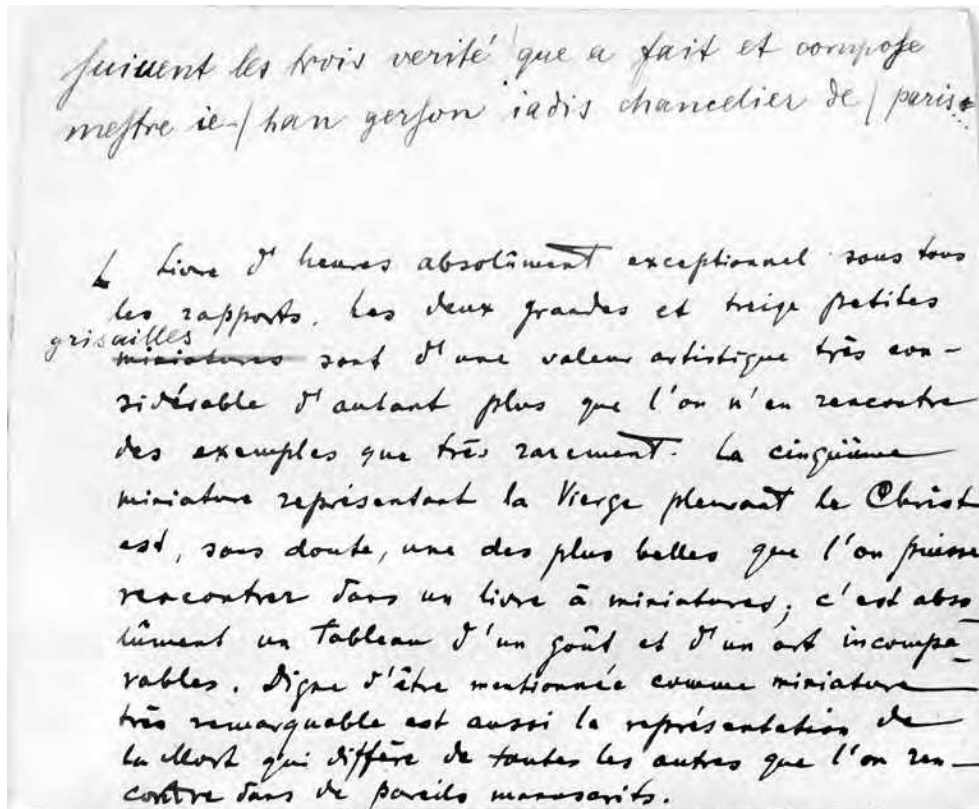 ſuiuent les trois verité que a fait et compoſe
meſtre ie-/han gerſon iadis chancelier de / paris
Livre d'heures absolûment exceptionnel sous tous
les rapports. Les deux grandes et treize petites
grisailles
miniatures sont d'une valeur artistique très con-
sidérable d'autant plus que l'on n'en rencontre
des exemples que très rarement. La cinquième
miniature représentant la Vierge pleurant le Christ
est, sans doute, une des plus belles que l'on puisse
rencontrer dans un livre à miniatures; c'est abso
lûment un tableau d'un goût et d'un art incompa-
rables. Digne d'être mentionnée comme miniature
très remarquable est aussi la représentation de
la Mort qui diffère de toutes les autres que l'on ren-
contre dans de pareils manuscrits.